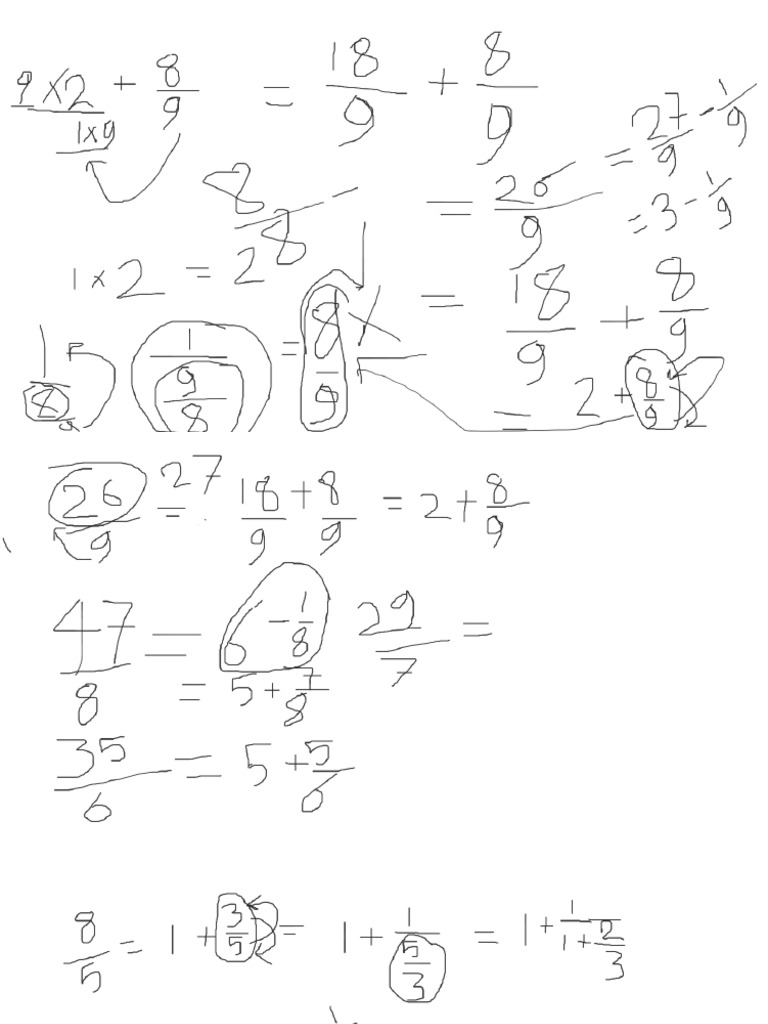 9 × 2 / 1 × 9 + 8/9 = 18/9 + 8/9
= 26/9 = 27/9 - 1/9
= 3 - 1/9
8/8 -
1 × 2 = 2
= 18/9 + 8/9
1/8/9 1/(9/8) = 8/9
= 2 + 8/9
26/9 = 27 18/9 + 8/9 = 2 + 8/9
47/8 = 6 - 1/8 29/7 =
= 5 + 7/8
35/6 = 5 + 5/6
8/5 = 1 + 3/5 = 1 + 1/(5/3) = 1 + 1/(1 + 2/3)